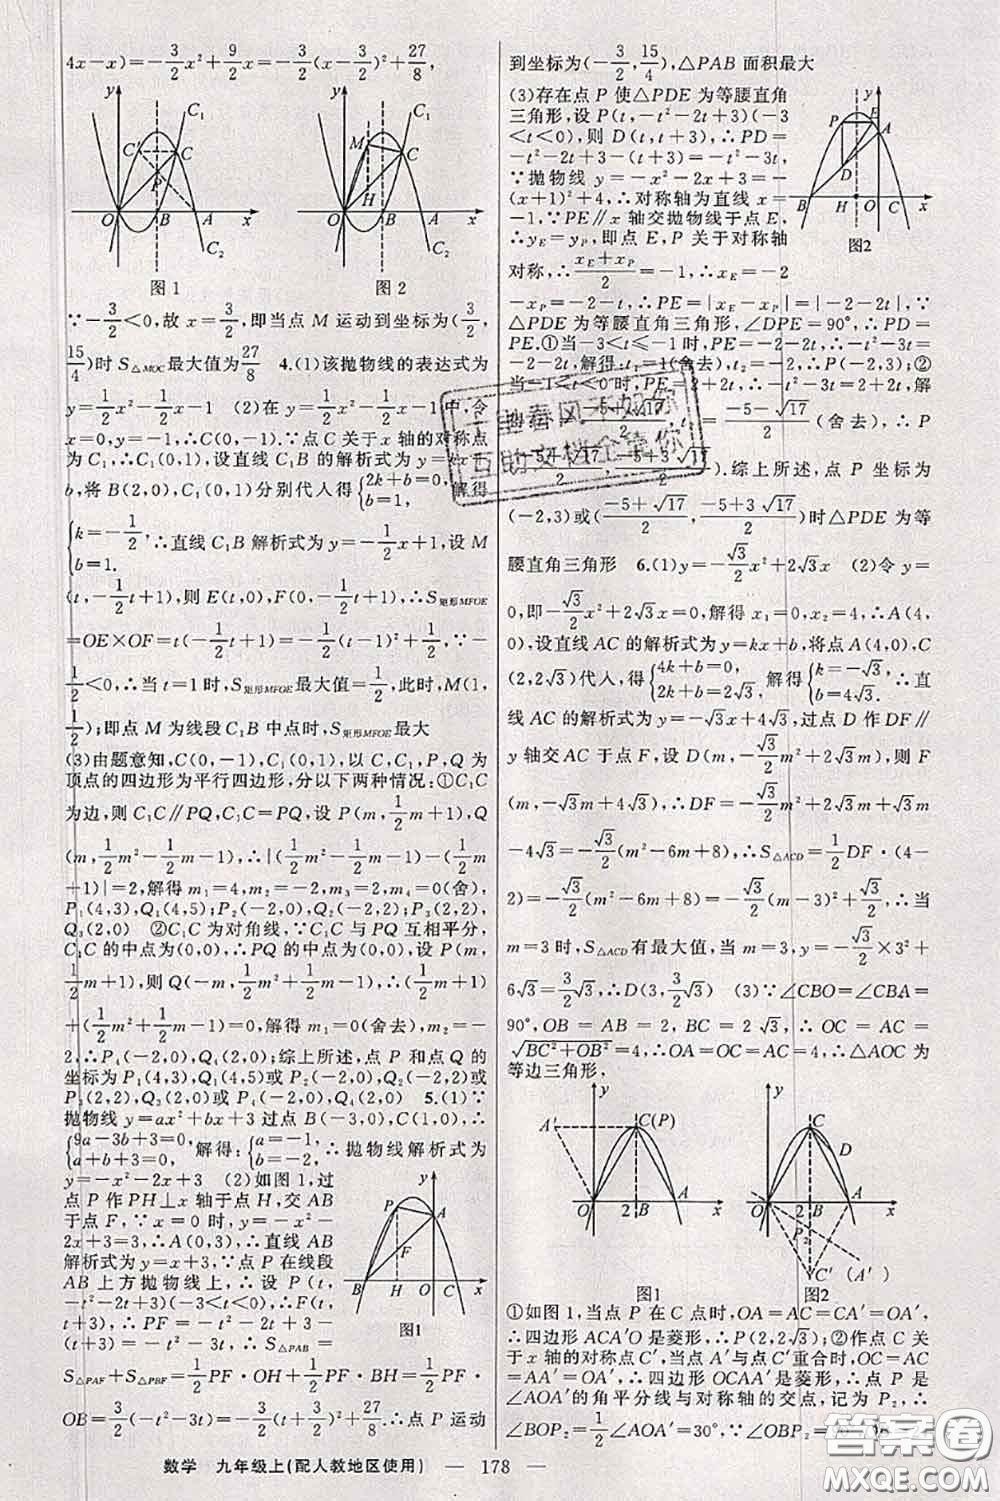 4x-x)=-3/2x²+9/2x=-3/2(x-3/2)²+27/8,
y C₁ C' C P O B A x C₂
图1
y C₁ M C O H B A x C₂
图2
∵-3/2<0,故x=3/2,即当点M运动到坐标为(3/2,
15/4)时S△MOC最大值为27/8 4.(1)该抛物线的表达式为
y=1/2x²-1/2x-1 (2)在y=1/2x²-1/2x-1中,令
x=0,y=-1,∴C(0,-1).∵点C关于x轴的对称点
为C₁,∴C₁(0,1),设直线C₁B的解析式为y=kx+
b,将B(2,0),C₁(0,1)分别代人得{2k+b=0, b=1, 解得
{k=-1/2, b=1. ∴直线C₁B解析式为y=-1/2x+1,设M
(t,-1/2t+1),则E(t,0),F(0,-1/2t+1),∴S矩形MFOE
=OE×OF=t(-1/2t+1)=-1/2(t-1)²+1/2,∵-
1/2<0,∴当t=1时,S矩形MFOE最大值=1/2,此时,M(1,
1/2);即点M为线段C₁B中点时,S矩形MFOE最大
(3)由题意知,C(0,-1),C₁(0,1),以C,C₁,P,Q为
顶点的四边形为平行四边形,分以下两种情况:①C₁C
为边,则C₁C∥PQ,C₁C=PQ,设P(m,1/2m+1),Q
(m,1/2m²-1/2m-1),∴|(1/2m²-1/2m-1)-(1/2m
+1)|=2,解得m₁=4,m₂=-2,m₃=2,m₄=0(舍),
P₁(4,3),Q₁(4,5);P₂(-2,0),Q₂(-2,2);P₃(2,2),
Q₃(2,0) ②C₁C为对角线,∵C₁C与PQ互相平分,
C₁C的中点为(0,0),∴PQ的中点为(0,0),设P(m,
1/2m+1),则Q(-m,1/2m²+1/2m-1),∴(1/2m+1)
+(1/2m²+1/2m-1)=0,解得m₁=0(舍去),m₂=-
2,∴P₄(-2,0),Q₄(2,0);综上所述,点P和点Q的
坐标为P₁(4,3),Q₁(4,5)或P₂(-2,0),Q₂(-2,2)或
P₃(2,2),Q₃(2,0)或P₄(-2,0),Q₄(2,0) 5.(1)∵
抛物线y=ax²+bx+3过点B(-3,0),C(1,0),∴
{9a-3b+3=0, a+b+3=0, 解得:{a=-1, b=-2, ∴抛物线解析式为
y=-x²-2x+3 (2)如图1,过
点P作PH⊥x轴于点H,交AB
于点F,∵x=0时,y=-x²-
2x+3=3,∴A(0,3),∴直线AB
解析式为y=x+3,∵点P在线段
AB上方抛物线上,∴设P(t,
-t²-2t+3)(-3<t<0),∴F(t,
t+3),∴PF=-t²-2t+3-
(t+3)=-t²-3t,∴S△PAB=
y P A F B H O C x
图1
S△PAF+S△PBF=1/2PF·OH+1/2PF·BH=1/2PF·
OB=3/2(-t²-3t)=-3/2(t+3/2)²+27/8.∴点P运动
到坐标为(-3/2,15/4),△PAB面积最大
(3)存在点P使△PDE为等腰直角
三角形,设P(t,-t²-2t+3)(-3
<t<0),则D(t,t+3),∴PD=
-t²-2t+3-(t+3)=-t²-3t,
∵抛物线y=-x²-2x+3=-
(x+1)²+4,∴对称轴为直线x=
-1.∵PE∥x轴交抛物线于点E,
∴yE=yP,即点E,P关于对称轴
对称,∴(xE+xP)/2=-1,∴xE=-2
y P E A D B H O C x
图2
-xP=-2-t,∴PE=|xE-xP|=|-2-2t|,∵
△PDE为等腰直角三角形,∠DPE=90°,∴PD=
PE.①当-3<t≤-1时,PE=-2-2t,∴-t²-3t=
-2-2t,解得:t₁=1(舍去),t₂=-2,∴P(-2,3);②
当-1<t<0时,PE=2+2t,∴-t²-3t=2+2t,解
(-5+√17)/2, (-5-√17)/2(舍去),∴P
(-5+√17)/2,(-5+3√17)/2).综上所述,点P坐标为
(-2,3)或((-5+√17)/2,(-5+3√17)/2)时△PDE为等
腰直角三角形 6.(1)y=-√3/2x²+2√3x (2)令y=
0,即-√3/2x²+2√3x=0,解得x₁=0,x₂=4,∴A(4,
0),设直线AC的解析式为y=kx+b,将点A(4,0),C
(2,2√3)代人,得{4k+b=0, 2k+b=2√3, 解得{k=-√3, b=4√3. ∴直
线AC的解析式为y=-√3x+4√3,过点D作DF∥
y轴交AC于点F,设D(m,-√3/2m²+2√3m),则F
(m,-√3m+4√3),∴DF=-√3/2m²+2√3m+√3m
-4√3=-√3/2(m²-6m+8),∴S△ACD=1/2DF·(4-
2)=-√3/2(m²-6m+8)=-√3/2(m-3)²+√3/2,∴当
m=3时,S△ACD有最大值,当m=3,y=-√3/2×3²+
6√3=3/2√3,∴D(3,3/2√3) (3)∵∠CBO=∠CBA=
90°,OB=AB=2,BC=2√3,∴OC=AC=
√(BC²+OB²)=4,∴OA=OC=AC=4,∴△AOC为
等边三角形,
y A' C(P) O 2 B A x
图1
y C D O 2 B A x P₂ C'(A')
图2
①如图1,当点P在C点时,OA=AC=CA'=OA',
∴四边形ACA'O是菱形,∴P(2,2√3);②作点C关
于x轴的对称点C',当点A'与点C'重合时,OC=AC
=AA'=OA',∴四边形OCAA'是菱形,∴点P是
∠AOA'的角平分线与对称轴的交点,记为P₂,∴
∠BOP₂=1/2∠AOA'=30°,∵∠OBP₂=90°,OB
数学 九年级上(配人教地区使用) — 178 —
答案圈
MXQE.COM